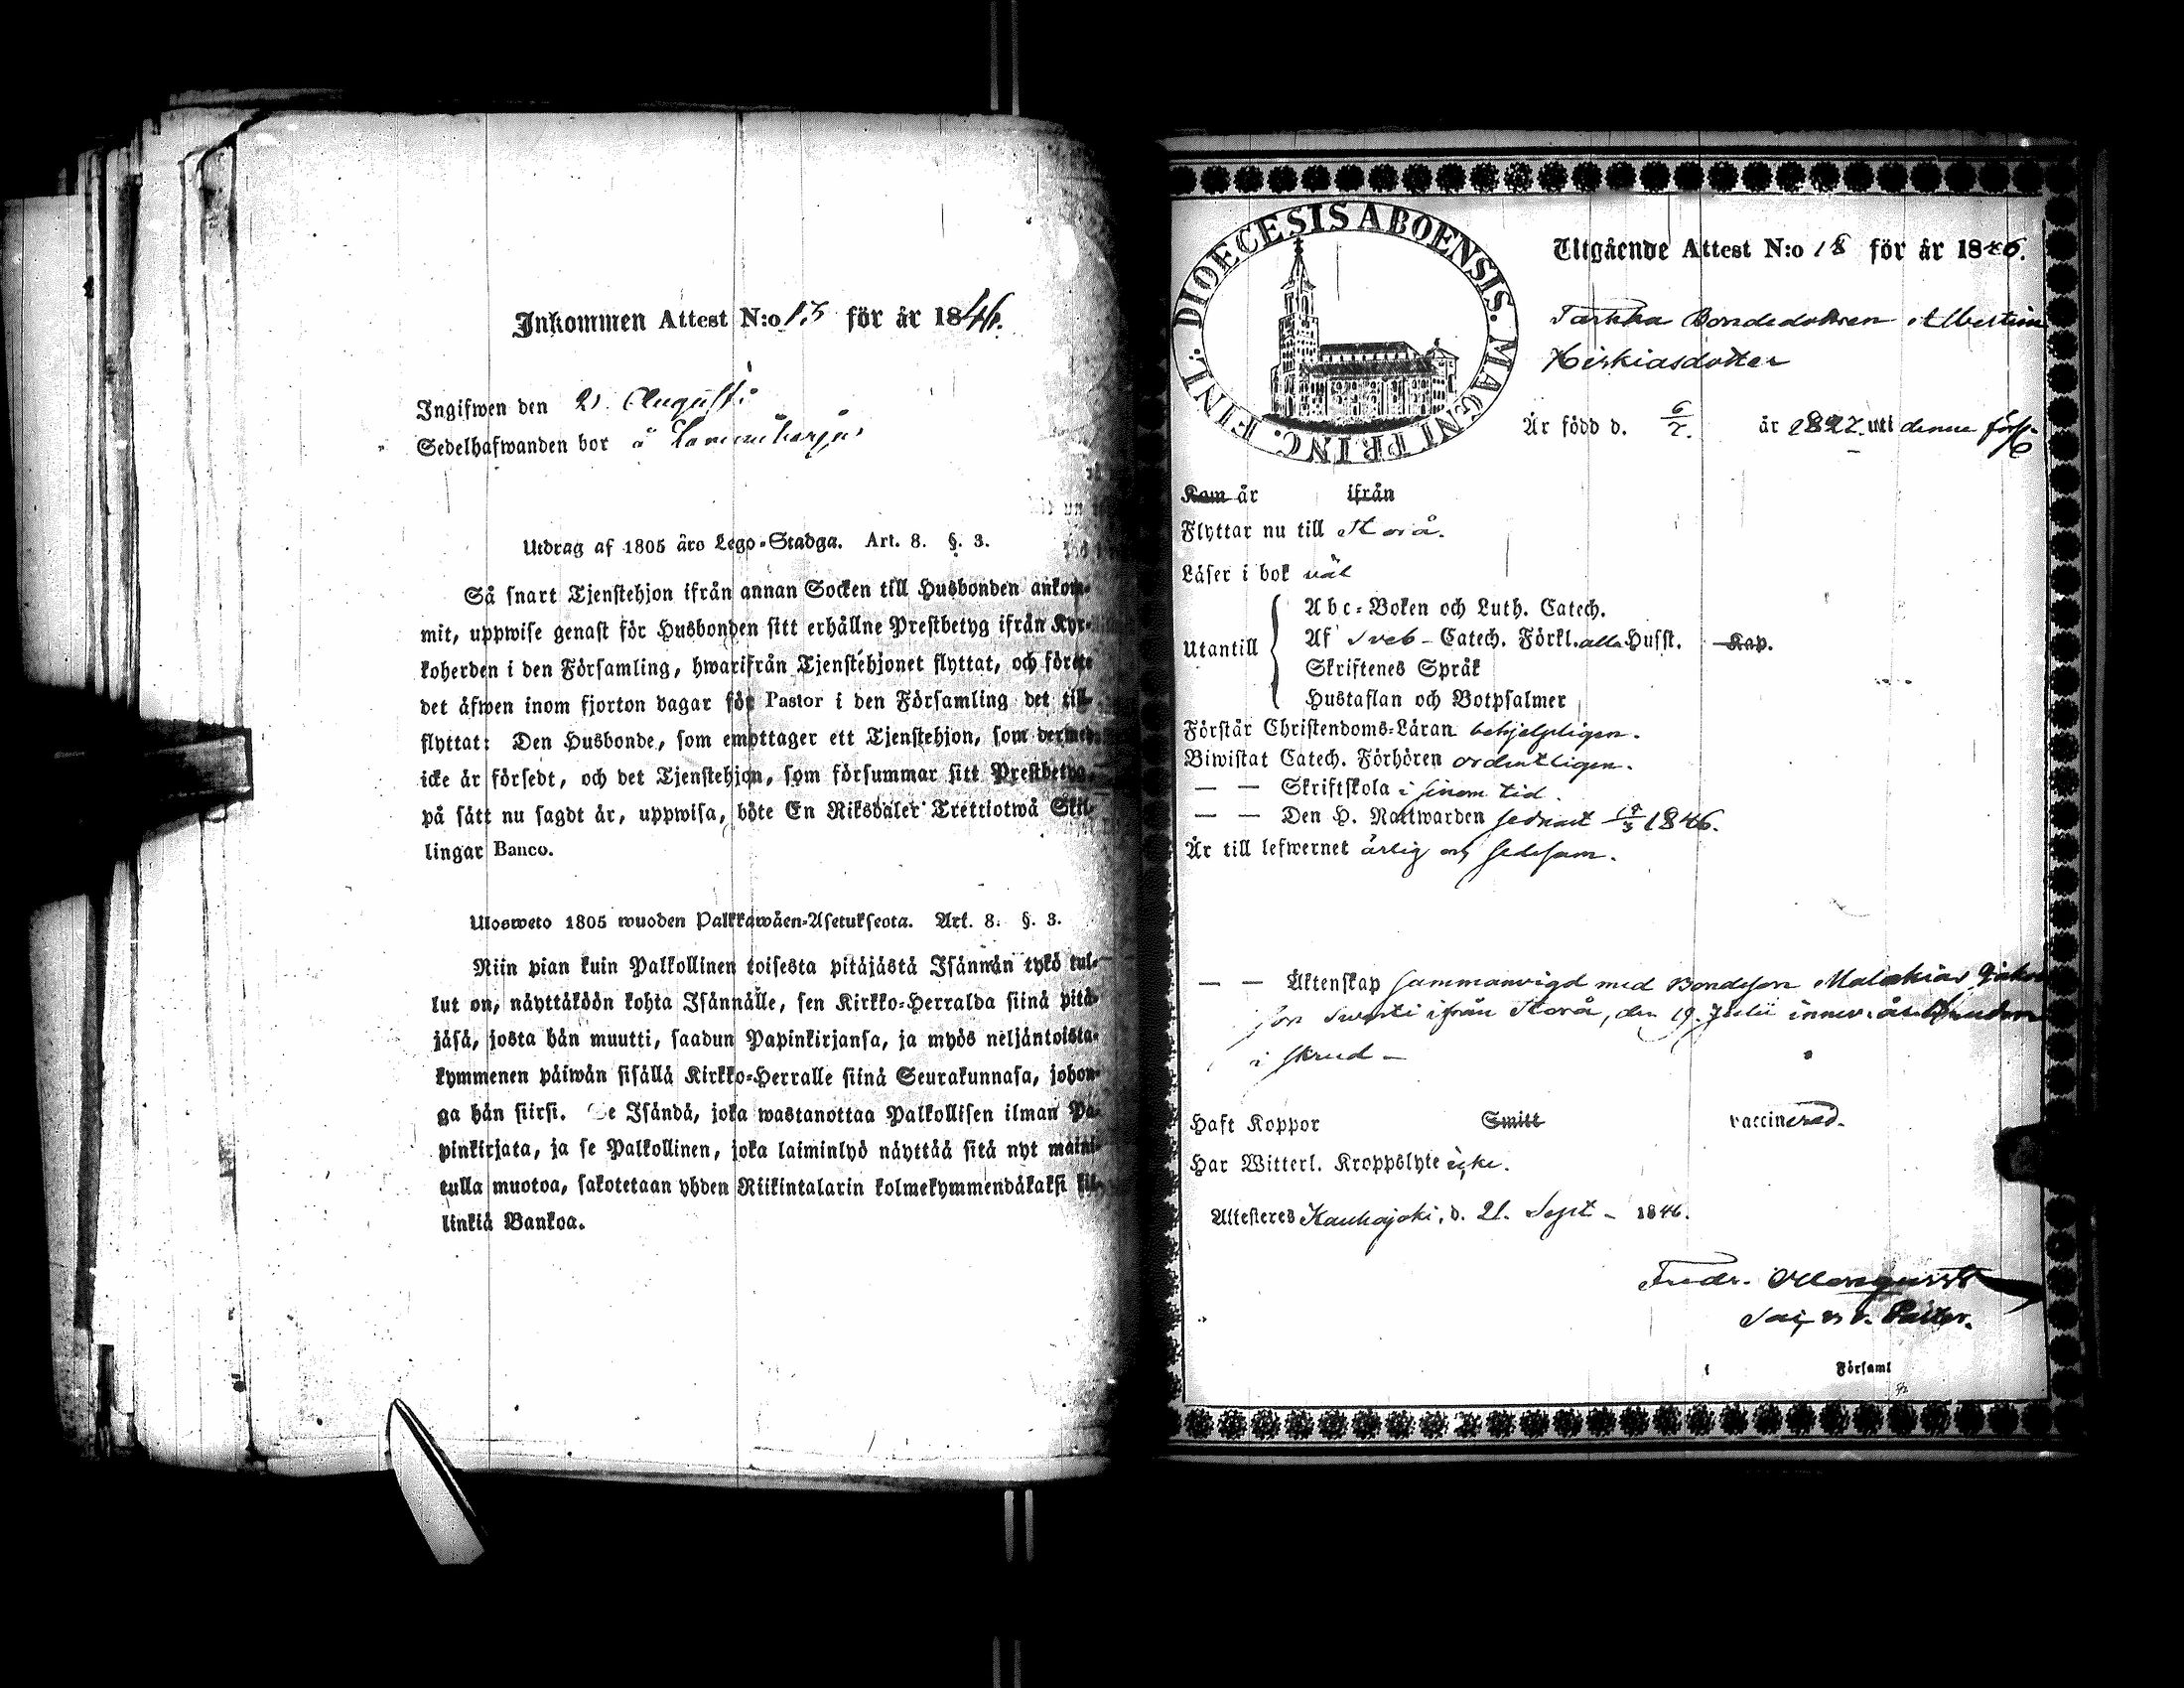 Inkommen Attest N:o 13 för år 1846.
Ingifwen den 21 Augusti
Sedelhafwanden bor å
Utdrag af 1805 års Lego-Stadga. Art. 8. §. 3.
Så snart Tjenstehjon ifrån annan Socken till Husbonden ankom-
mit, uppwise genast för Husbonden sitt erhållne Prestbetyg ifrån Kyr-
koherden i den Församling, hwarifrån Tjenstehjonet flyttat, och förete
det äfwen inom fjorton dagar för Pastor i den Församling det till-
flyttat: Den Husbonde, som emottager ett Tjenstehjon, som dermed
icke är försedt, och det Tjenstehjon, som försummar sitt Prestbetyg,
på sätt nu sagdt är, uppwisa, böte En Riksdaler Trettiotwå Skil-
lingar Banco.
Ulosweto 1805 wuoden Palkkawäen-Asetuksesta. Art. 8. §. 3.
Niin pian kuin Palkollinen toisesta pitäjästä Isännän tykö tul-
lut on, näyttäköön kohta Isännälle, sen Kirkko-Herralda siinä pitä-
jäsä, josta hän muutti, saadun Papinkirjansa, ja myös neljäntoista-
kymmenen päiwän sisällä Kirkko-Herralle siinä Seurakunnasa, johon-
ga hän siirsi. Se Isändä, joka wastanottaa Palkollisen ilman Pa-
pinkirjata, ja se Palkollinen, joka laiminlyö näyttää sitä nyt maini-
tulla muotoa, sakotetaan yhden Riikintalarin kolmekymmendäkaksi kil-
linkiä Bankoa.
DIOECESIS ABOENSIS. MAGNI PRINC. FINL:
Utgående Attest N:o 18 för år 1846.
Tarkka Bondedottren Albertina
Hiskiasdotter
Är född d. 6/7. år 1827. uti denne förs.
Kom år ifrån
Flyttar nu till Storå.
Läser i bok väl
Utantill
Abc-Boken och Luth. Catech.
Af Sveb- Catech. Förkl. alla Hufst. Kap.
Skriftenes Språk
Hustaflan och Botpsalmer
Förstår Christendoms-Läran behjelpligen.
Biwistat Catech. Förhören ordentligen.
— — Skriftskola i sinom tid.
— — Den H. Nattwarden sednast 19/3 1846.
Är till lefwernet ärlig och sedesam.
— — Äktenskap sammanvigd med Bondeson Malakias Jakob
son ifrån Storå, den 19. Julii innev. år
i skrud —
Haft Koppor Smitt vaccinerad.
Har Witterl. Kroppslyte icke.
Attesteres Kauhajoki, d. 21. Sept — 1846.
Fredr.
Församl